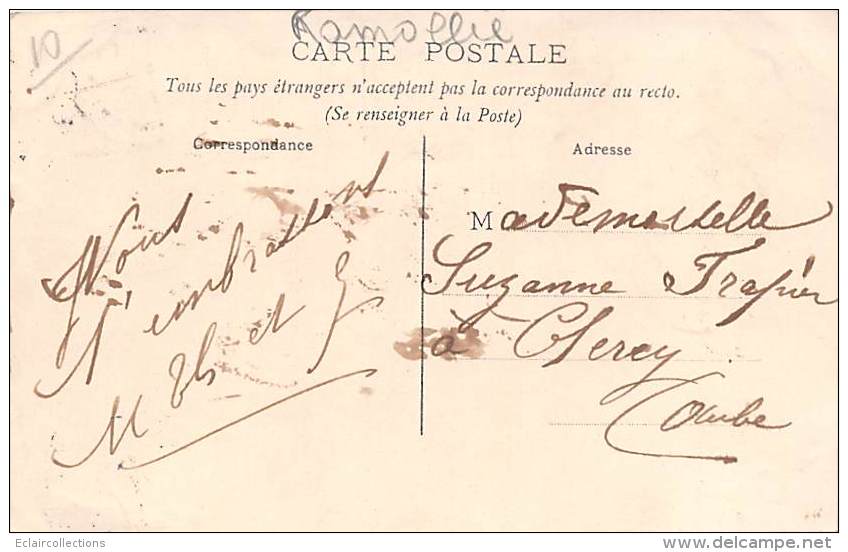 10
Ramollie
CARTE POSTALE
Tous les pays étrangers n'acceptent pas la correspondance au recto.
(Se renseigner à la Poste)
Correspondance
Nous
t'embrassons
et
Adresse
Mademoiselle
Suzanne Trapier
à Clerey
L'aube
Eclaircollections
www.delcampe.net